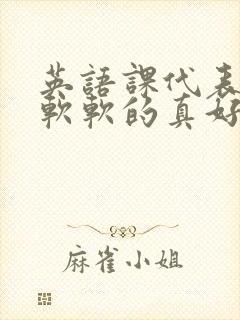 英語課代表
軟軟的真好
麻雀小姐